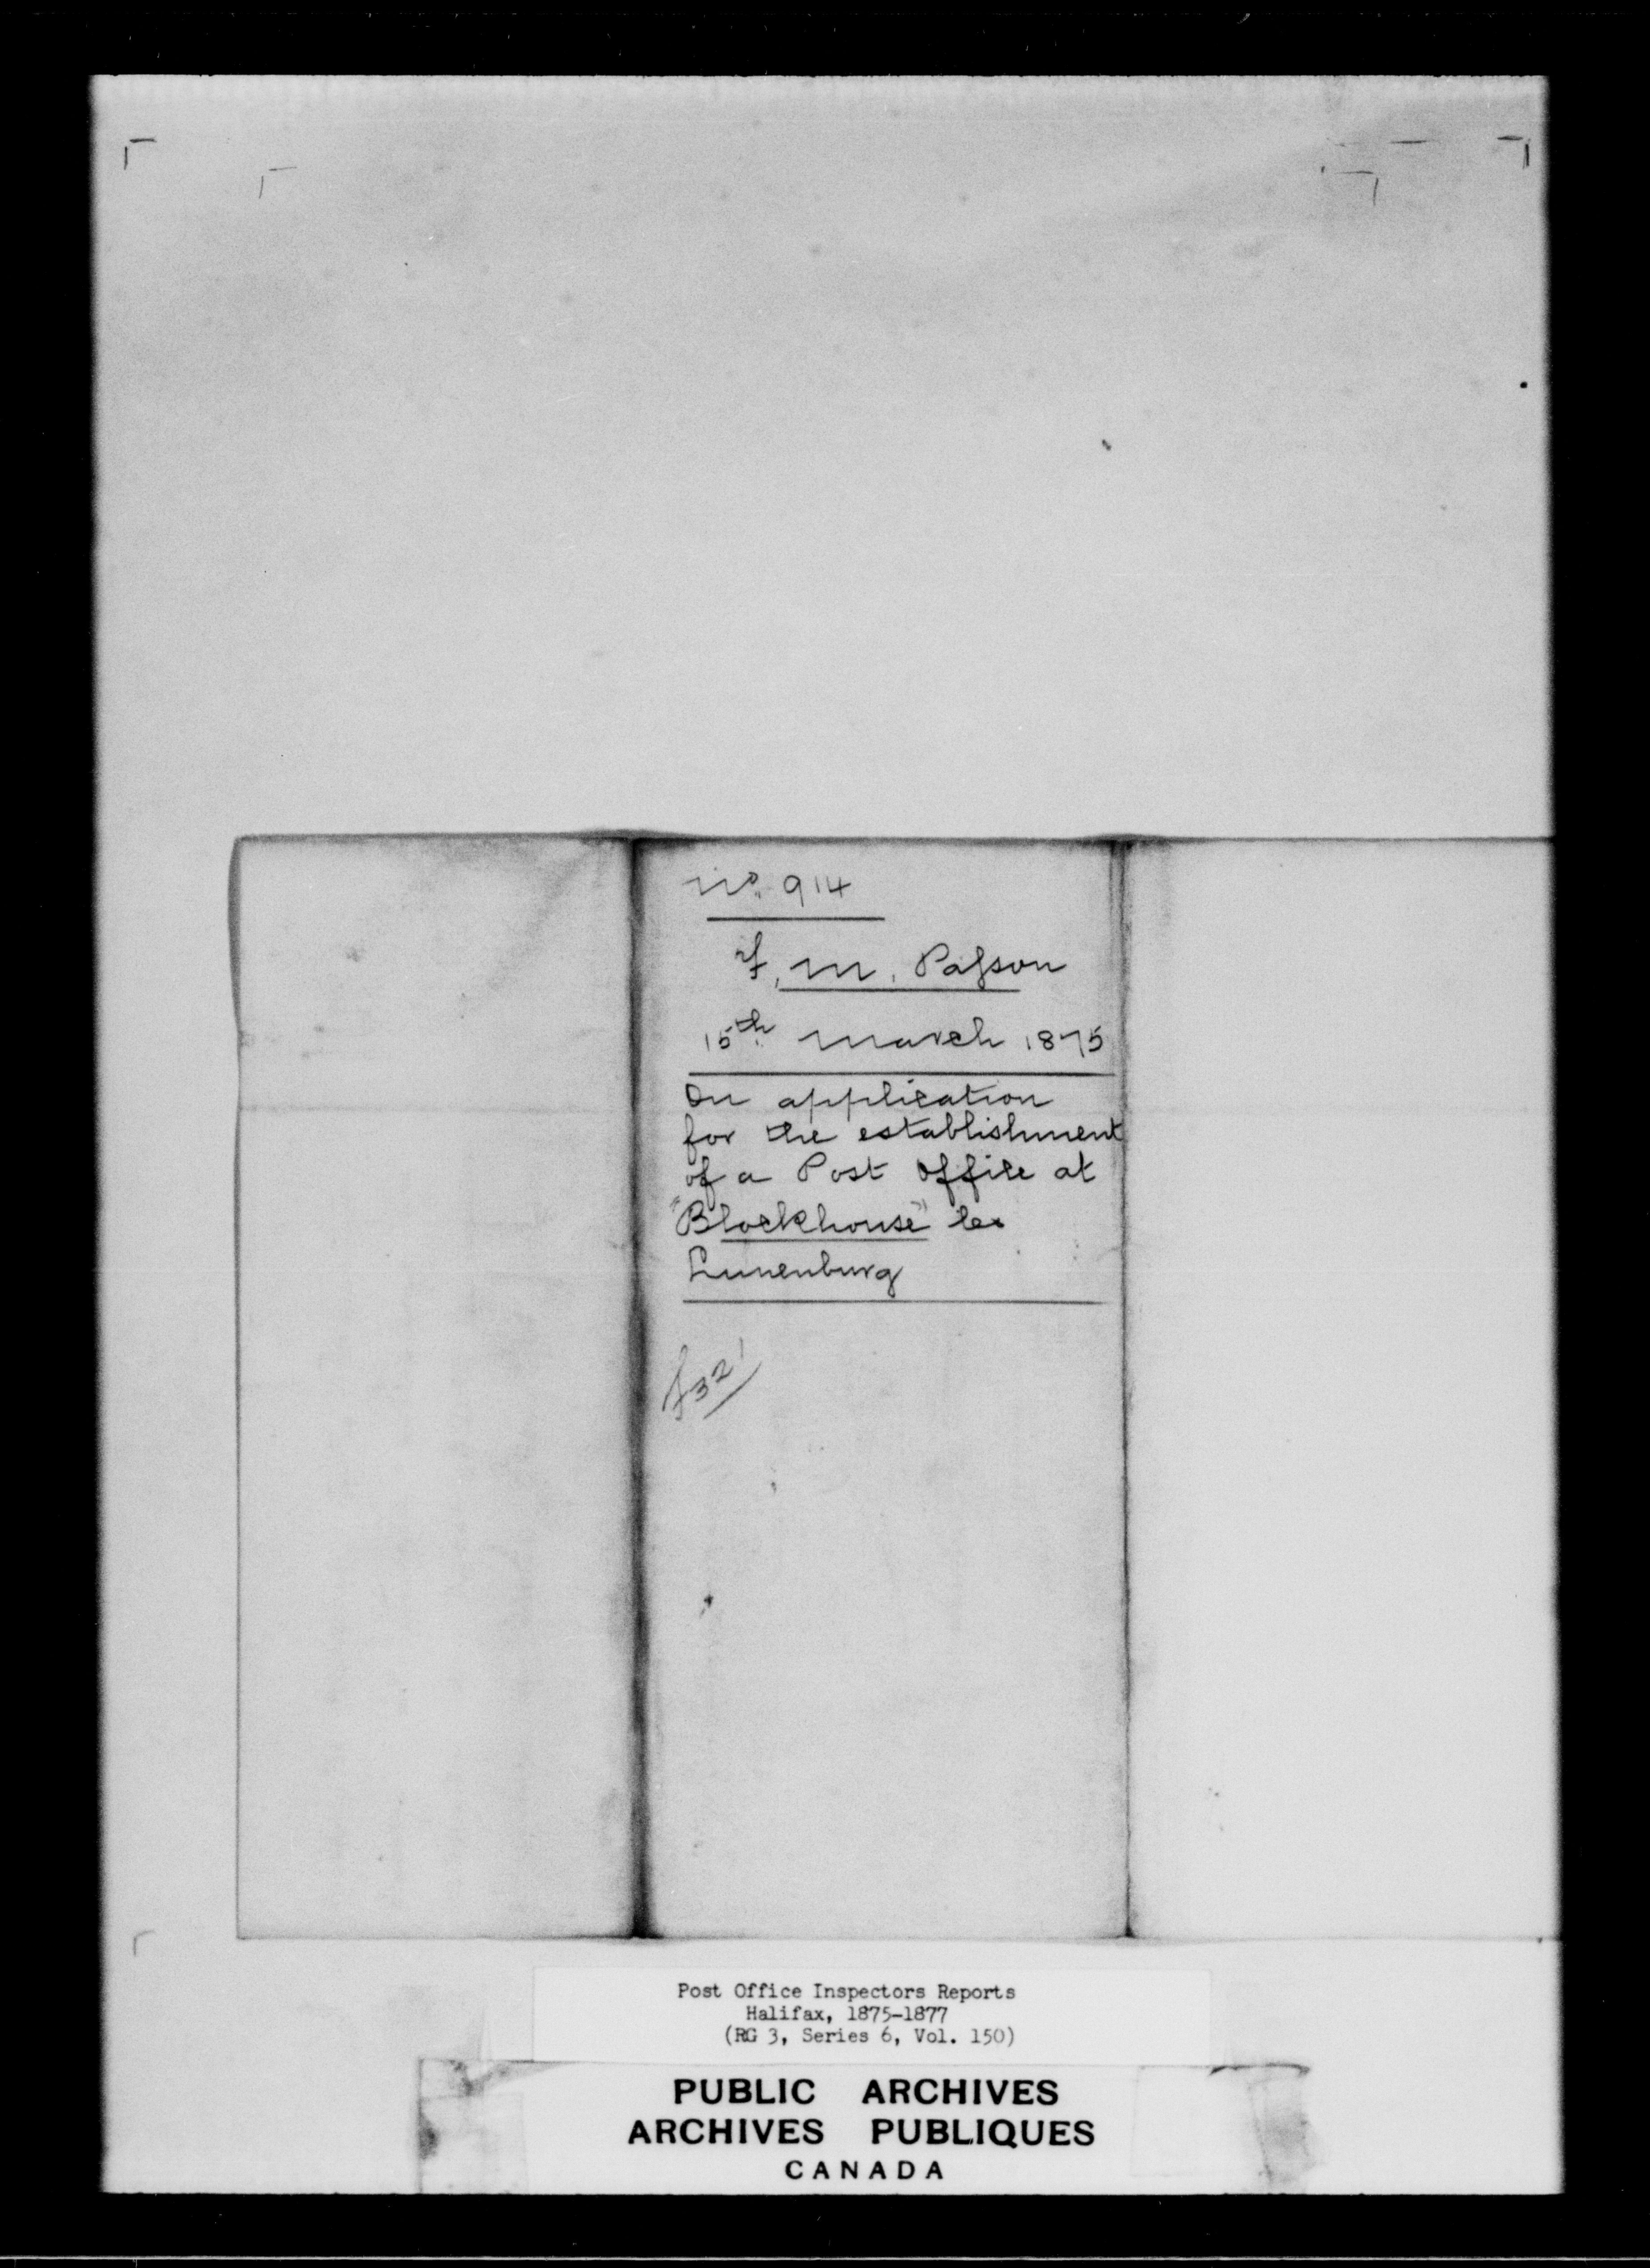 No. 914
F. M. Passon
15th March 1875
On application
for the establishment
of a Post Office at
"Blockhouse" Co
Lunenburg
f321
Post Office Inspectors Reports
Halifax, 1875-1877
(RG 3, Series 6, Vol. 150)
PUBLIC ARCHIVES
ARCHIVES PUBLIQUES
CANADA